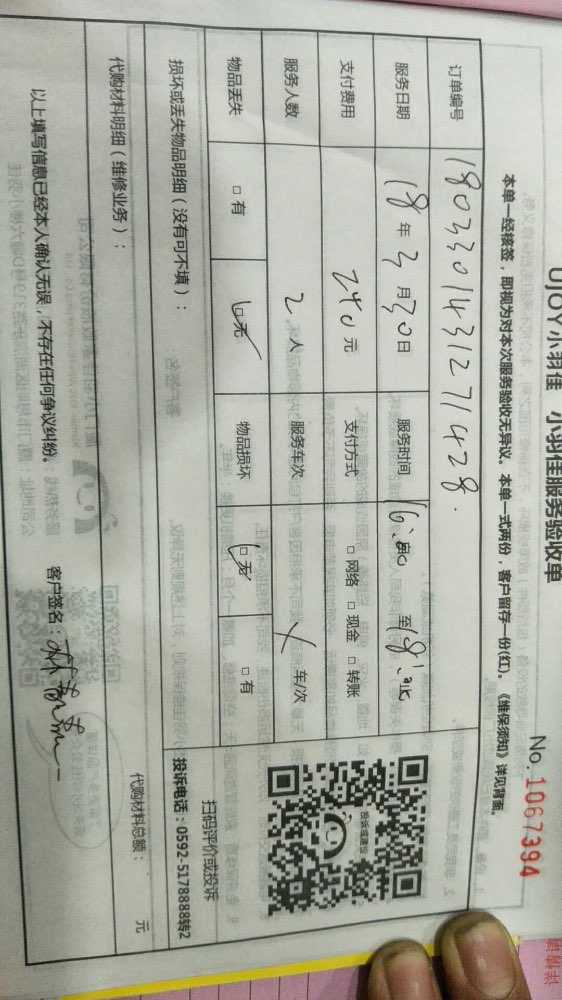 UJOY小羽佳 小羽佳服务验收单
No. 1067394
本单一经核签，即视为对本次服务验收无异议。本单一式两份，客户留存一份(红)。《维保须知》详见背面。
订单编号 180330143127 1428.
服务日期 18年3月30日 服务时间 至
支付费用 240元 支付方式 □网络 □现金 □转账
服务人数 2人 服务车次 车/次
物品丢失 □有 □无 物品损坏 □无 □有
损坏或丢失物品明细（没有可不填）：
扫码评价或投诉
投诉电话：0592-5178888转2
投诉或建议
代购材料明细（维修业务）：
代购材料总额： 元
以上填写信息已经本人确认无误，不存在任何争议纠纷。 客户签名：